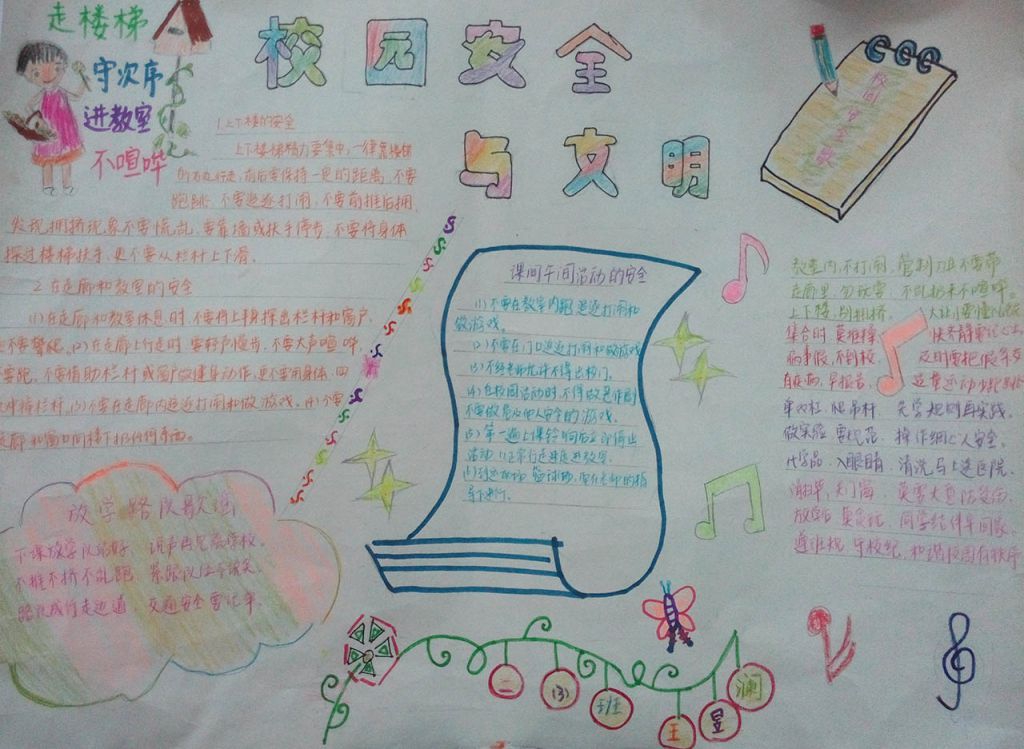 走楼梯
守次序
进教室
不喧哗
校园安全
与文明
校园安全歌
1.上下楼的安全
上下楼梯精力要集中,一律靠楼梯
的右边行走,前后要保持一定的距离,不要
跑跳,不要追逐打闹,不要前推后拥,
发现拥挤现象不要慌乱,要靠墙或扶手停步,不要将身体
探过楼梯扶手,更不要从栏杆上下滑。
2.在走廊和教室的安全
(1)在走廊和教室休息时,不要将上身探出栏杆和窗户,
也不要攀爬。(2)在走廊上行走时,要轻声慢步,不要大声喧哗,
不要跑,不要借助栏杆或窗户做健身动作,更不要用身体、四
冲撞栏杆。(3)不要在走廊内追逐打闹和做游戏。(4)不要
走廊和窗口向楼下扔任何东西。
课间午间活动的安全
(1)不要在教室内跑,追逐打闹和
做游戏。
(2)不要在门口追逐打闹和做游戏
(3)不经老师批准不得出校门。
(4)在校园活动时不得做恶作剧
不要做危及他人安全的游戏。
(5)第一遍上课铃响后立即停止
活动,以正常行走速度进教室。
教室内,不打闹,管制刀具不要带
走廊里,勿玩耍,
上下楼,别拥挤,
集合时
病事假,不到校,
及时要把假条交
先学规则再实践。
做实验,要规范,操作细心人安全。
化学品,入眼睛,清洗马上送医院。
放学后
同学结伴早回家。
守校纪,和谐校园有秩序
放学路队歌谣
下课放学队站好,说声再见离学校。
不推不挤不乱跑,紧跟队伍不说笑。
路队成行走边道,交通安全要记牢。
二(3)班王昱澜